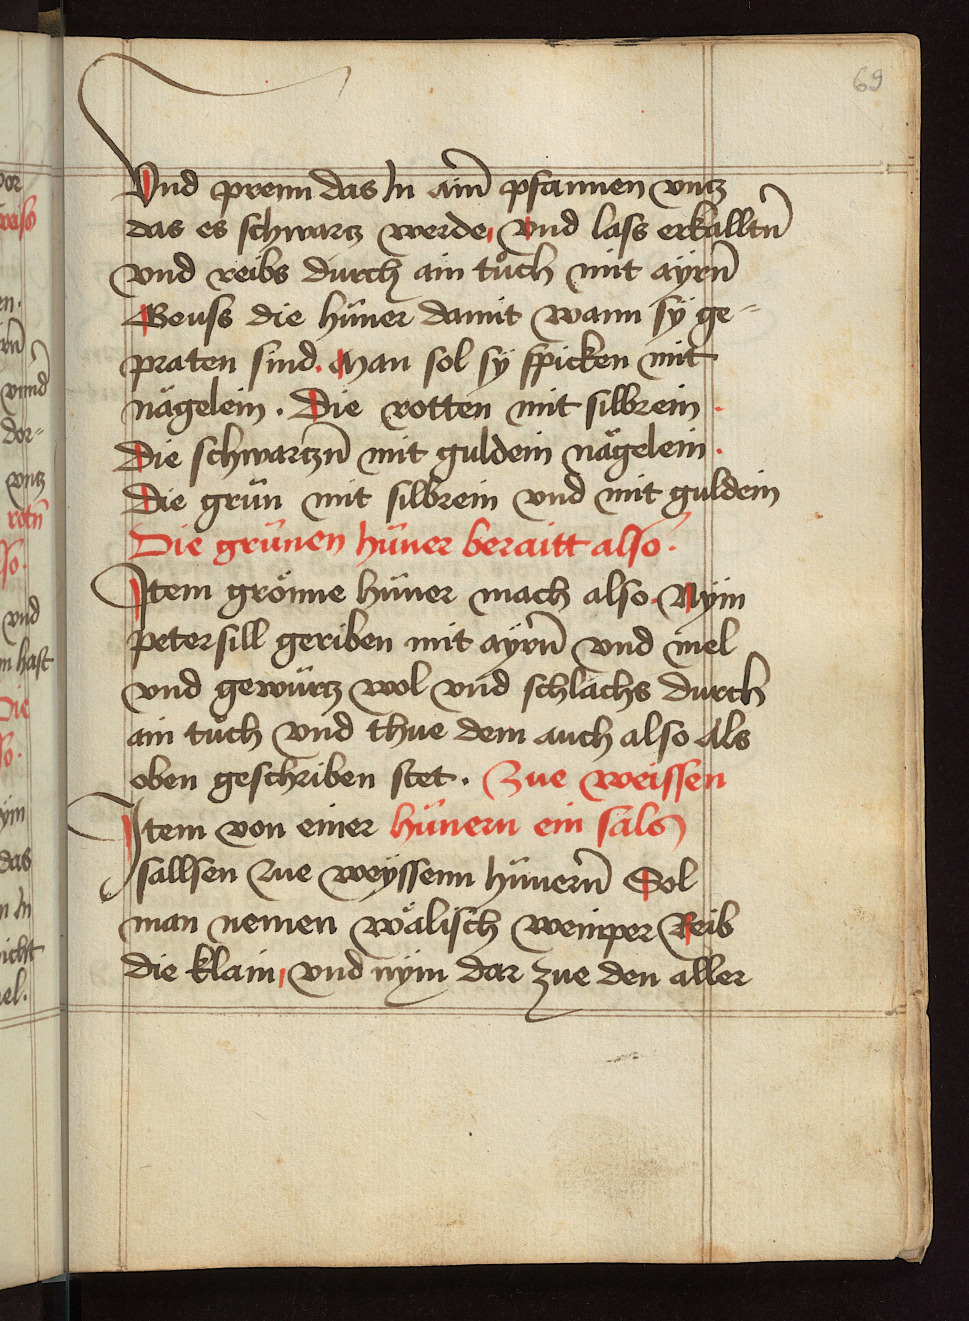 69
Vnd prenn das In aim̄ pfannen vntz
das es schwartz werde, vnd lass erkalltn̄
vnd reibs durch ain tůch mit ayrn̄
Beuss die hüner damit wann sÿ ge=
praten sind. Man sol sÿ spicken mit
nägelein. Die rotten mit silbrein.
Die schwartzn̄ mit guldein nägelein.
Die grün mit silbrein vnd mit guldein
Die grünen hüner beraitt also.
Item grönne hüner mach also. Nÿm
petersill geriben mit aÿrn̄ vnd mel
vnd gewürtz wol vnd schlachs durch
ain tuch vnd thue dem auch also als
oben geschriben stet. Zue weissen
Item von einer hünern ein sals
sallsen zue weÿssenn hünern̄ Sol
man nemen wälisch weinper Reib
die klain, vnd nÿm dar zue den aller